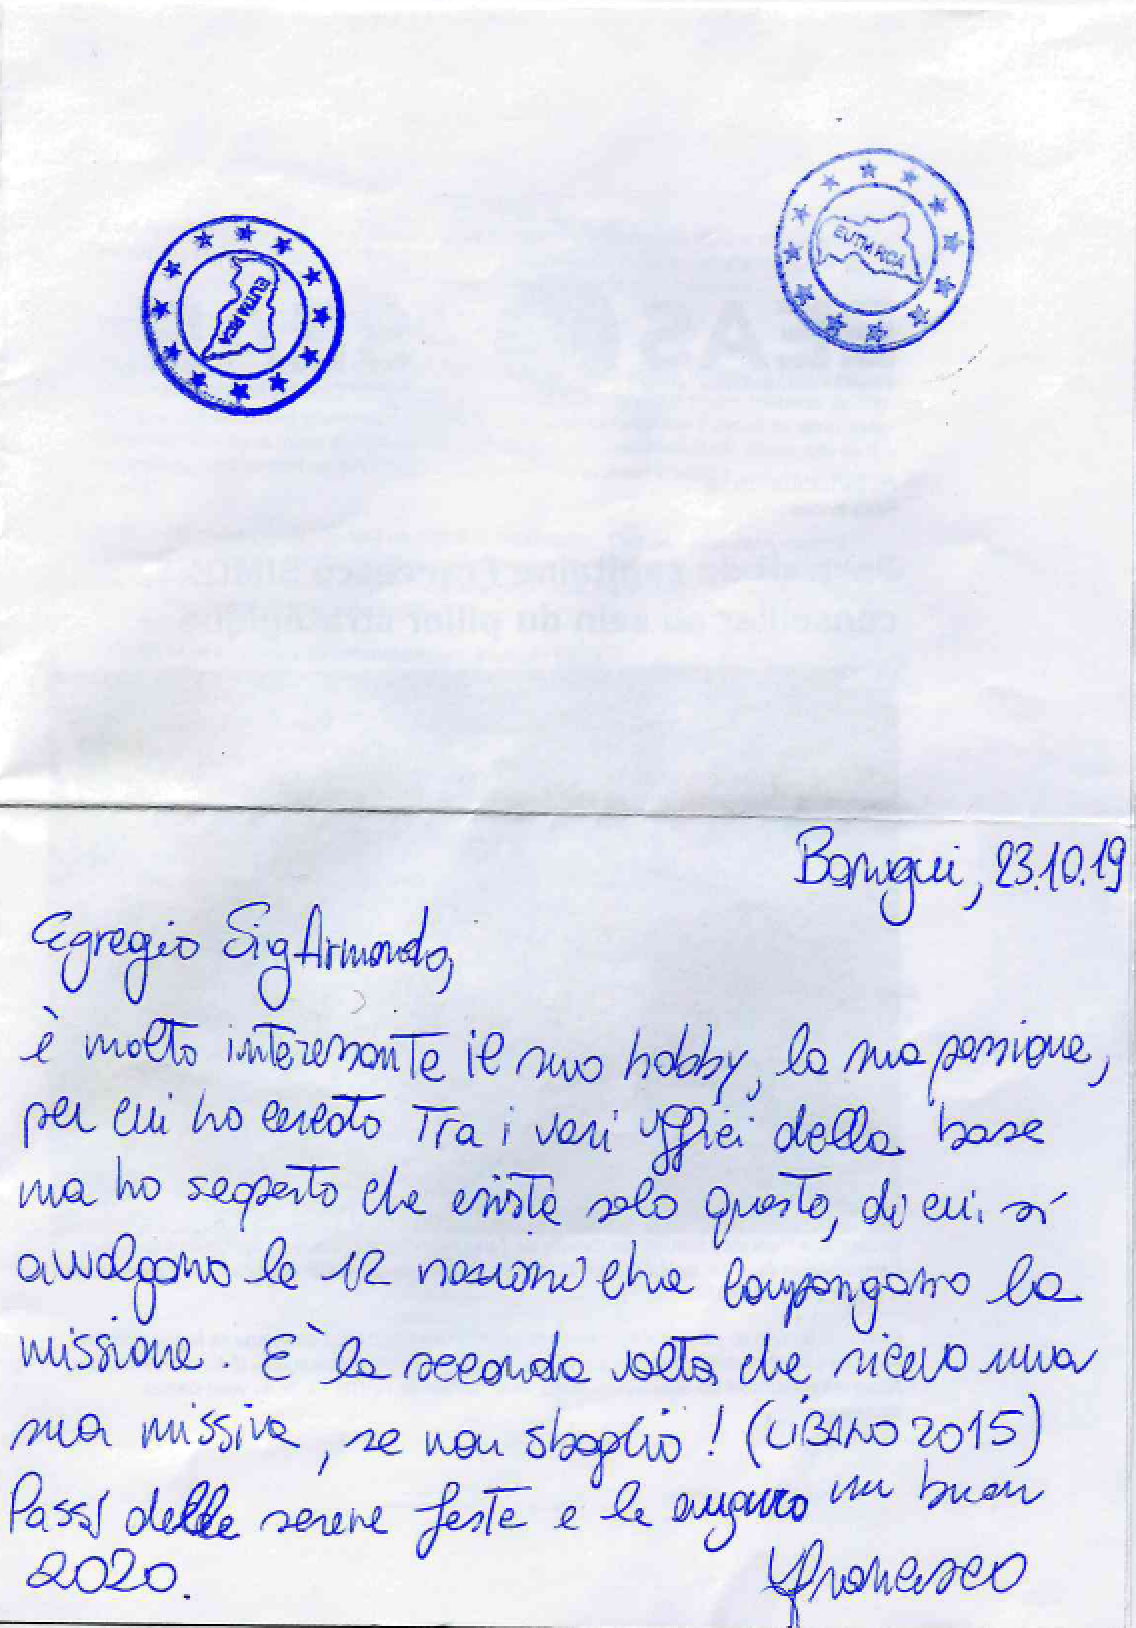 EUTM RCA
EUTM RCA
Bangui, 23.10.19
Egregio Sig Armando,
è molto interessante il suo hobby, la sua passione,
per cui ho cercato Tra i vari uffici della base
ma ho scoperto che esiste solo questo, di cui si
avvalgono le 12 nazioni che compongono la
missione. È la seconda volta che ricevo una
sua missiva, se non sbaglio! (LIBANO 2015)
Passi delle serene feste e le auguro un buon
2020.
Francesco